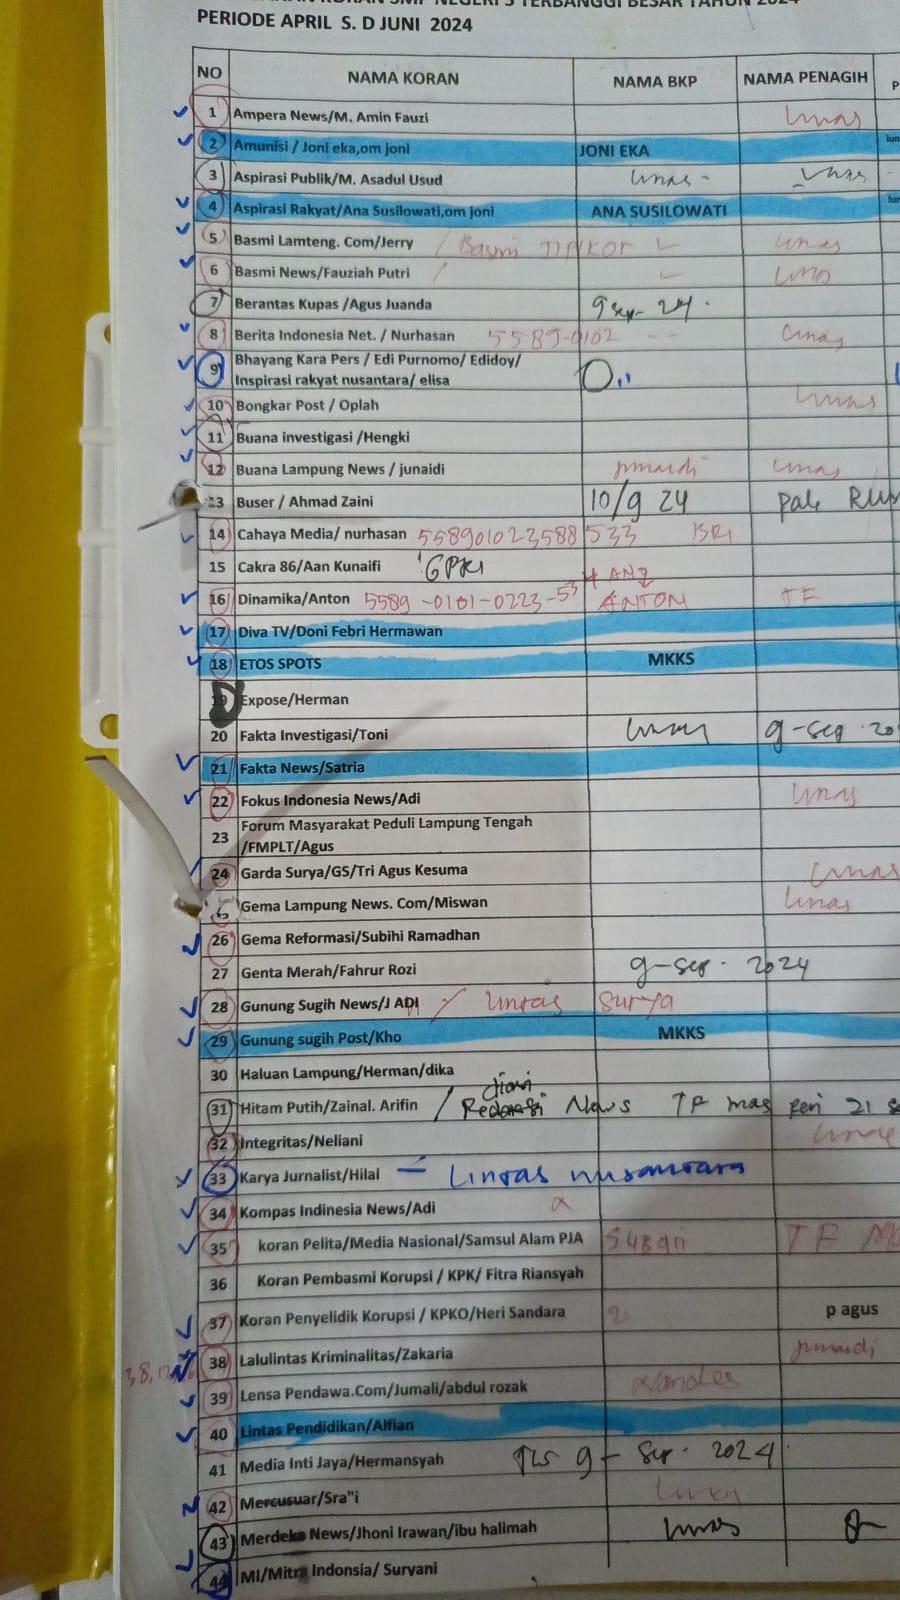 PERIODE APRIL S. D JUNI 2024
NO NAMA KORAN NAMA BKP NAMA PENAGIH P
1 Ampera News/M. Amin Fauzi lunas
2 Amunisi / Joni eka,om joni JONI EKA lun
3 Aspirasi Publik/M. Asadul Usud lunas - lunas
4 Aspirasi Rakyat/Ana Susilowati,om joni ANA SUSILOWATI lun
5 Basmi Lamteng. Com/Jerry / Basmi TIPIKOR lunas
6 Basmi News/Fauziah Putri / lunas
7 Berantas Kupas /Agus Juanda 9 sep - 24.
8 Berita Indonesia Net. / Nurhasan 5589-0102 -- lunas
9 Bhayang Kara Pers / Edi Purnomo/ Edidoy/
Inspirasi rakyat nusantara/ elisa
10 Bongkar Post / Oplah lunas
11 Buana investigasi /Hengki
12 Buana Lampung News / junaidi junaidi lunas
13 Buser / Ahmad Zaini 10/9 24 pak
14 Cahaya Media/ nurhasan 558901023588533 BRI
15 Cakra 86/Aan Kunaifi
16 Dinamika/Anton 5589-0101-0223-53 ANTON TF
17 Diva TV/Doni Febri Hermawan
18 ETOS SPOTS MKKS
19 Expose/Herman
20 Fakta Investigasi/Toni lunas 9-sep-20
21 Fakta News/Satria
22 Fokus Indonesia News/Adi lunas
23 Forum Masyarakat Peduli Lampung Tengah
/FMPLT/Agus
24 Garda Surya/GS/Tri Agus Kesuma lunas
Gema Lampung News. Com/Miswan lunas
26 Gema Reformasi/Subihi Ramadhan
27 Genta Merah/Fahrur Rozi 9-sep. 2024
28 Gunung Sugih News/J ADI / Lintas Surya
29 Gunung sugih Post/Kho MKKS
30 Haluan Lampung/Herman/dika
31 Hitam Putih/Zainal. Arifin / Redaksi News TF mas 21 s
32 Integritas/Neliani lunas
33 Karya Jurnalist/Hilal = Lintas nusantara
34 Kompas Indinesia News/Adi
35 koran Pelita/Media Nasional/Samsul Alam PJA TF
36 Koran Pembasmi Korupsi / KPK/ Fitra Riansyah
37 Koran Penyelidik Korupsi / KPKO/Heri Sandara p agus
38 Lalulintas Kriminalitas/Zakaria junaidi
39 Lensa Pendawa.Com/Jumali/abdul rozak
40 Lintas Pendidikan/Alfian
41 Media Inti Jaya/Hermansyah 9 - Sep. 2024.
42 Mercusuar/Sra"i lunas
43 Merdeka News/Jhoni Irawan/ibu halimah lunas
44 MI/Mitra Indonsia/ Suryani